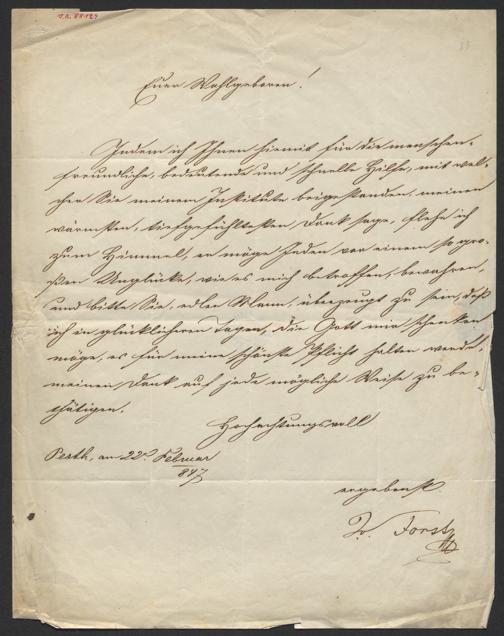 Euer Wohlgeboren!
Indem ich Ihnen hiemit für die menschen-
freundliche, bedeutende und schnelle Hilfe, mit wel-
cher Sie meinem Institute beigestanden, meinen
wärmsten, tiefgefühltesten Dank sage, flehe ich
zum Himmel, er möge Jeden vor einem so gro-
ßen Unglücke, wie es mich betroffen, bewahren,
und bitte Sie, edler Mann, überzeugt zu sein, daß
ich in glücklicheren Tagen, die Gott uns schenken
möge, es für meine schönste Pflicht halten werde,
meinen Dank auf jede mögliche Weise zu be-
thätigen.
Hochachtungsvoll
Pesth, am 22. Februar
847
ergebenst
Forst